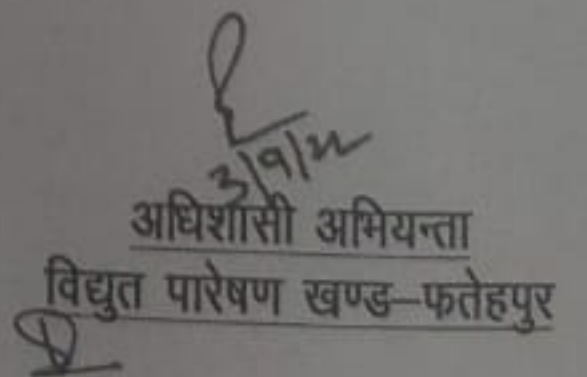 3/9/22
अधिशासी अभियन्ता
विद्युत पारेषण खण्ड–फतेहपुर